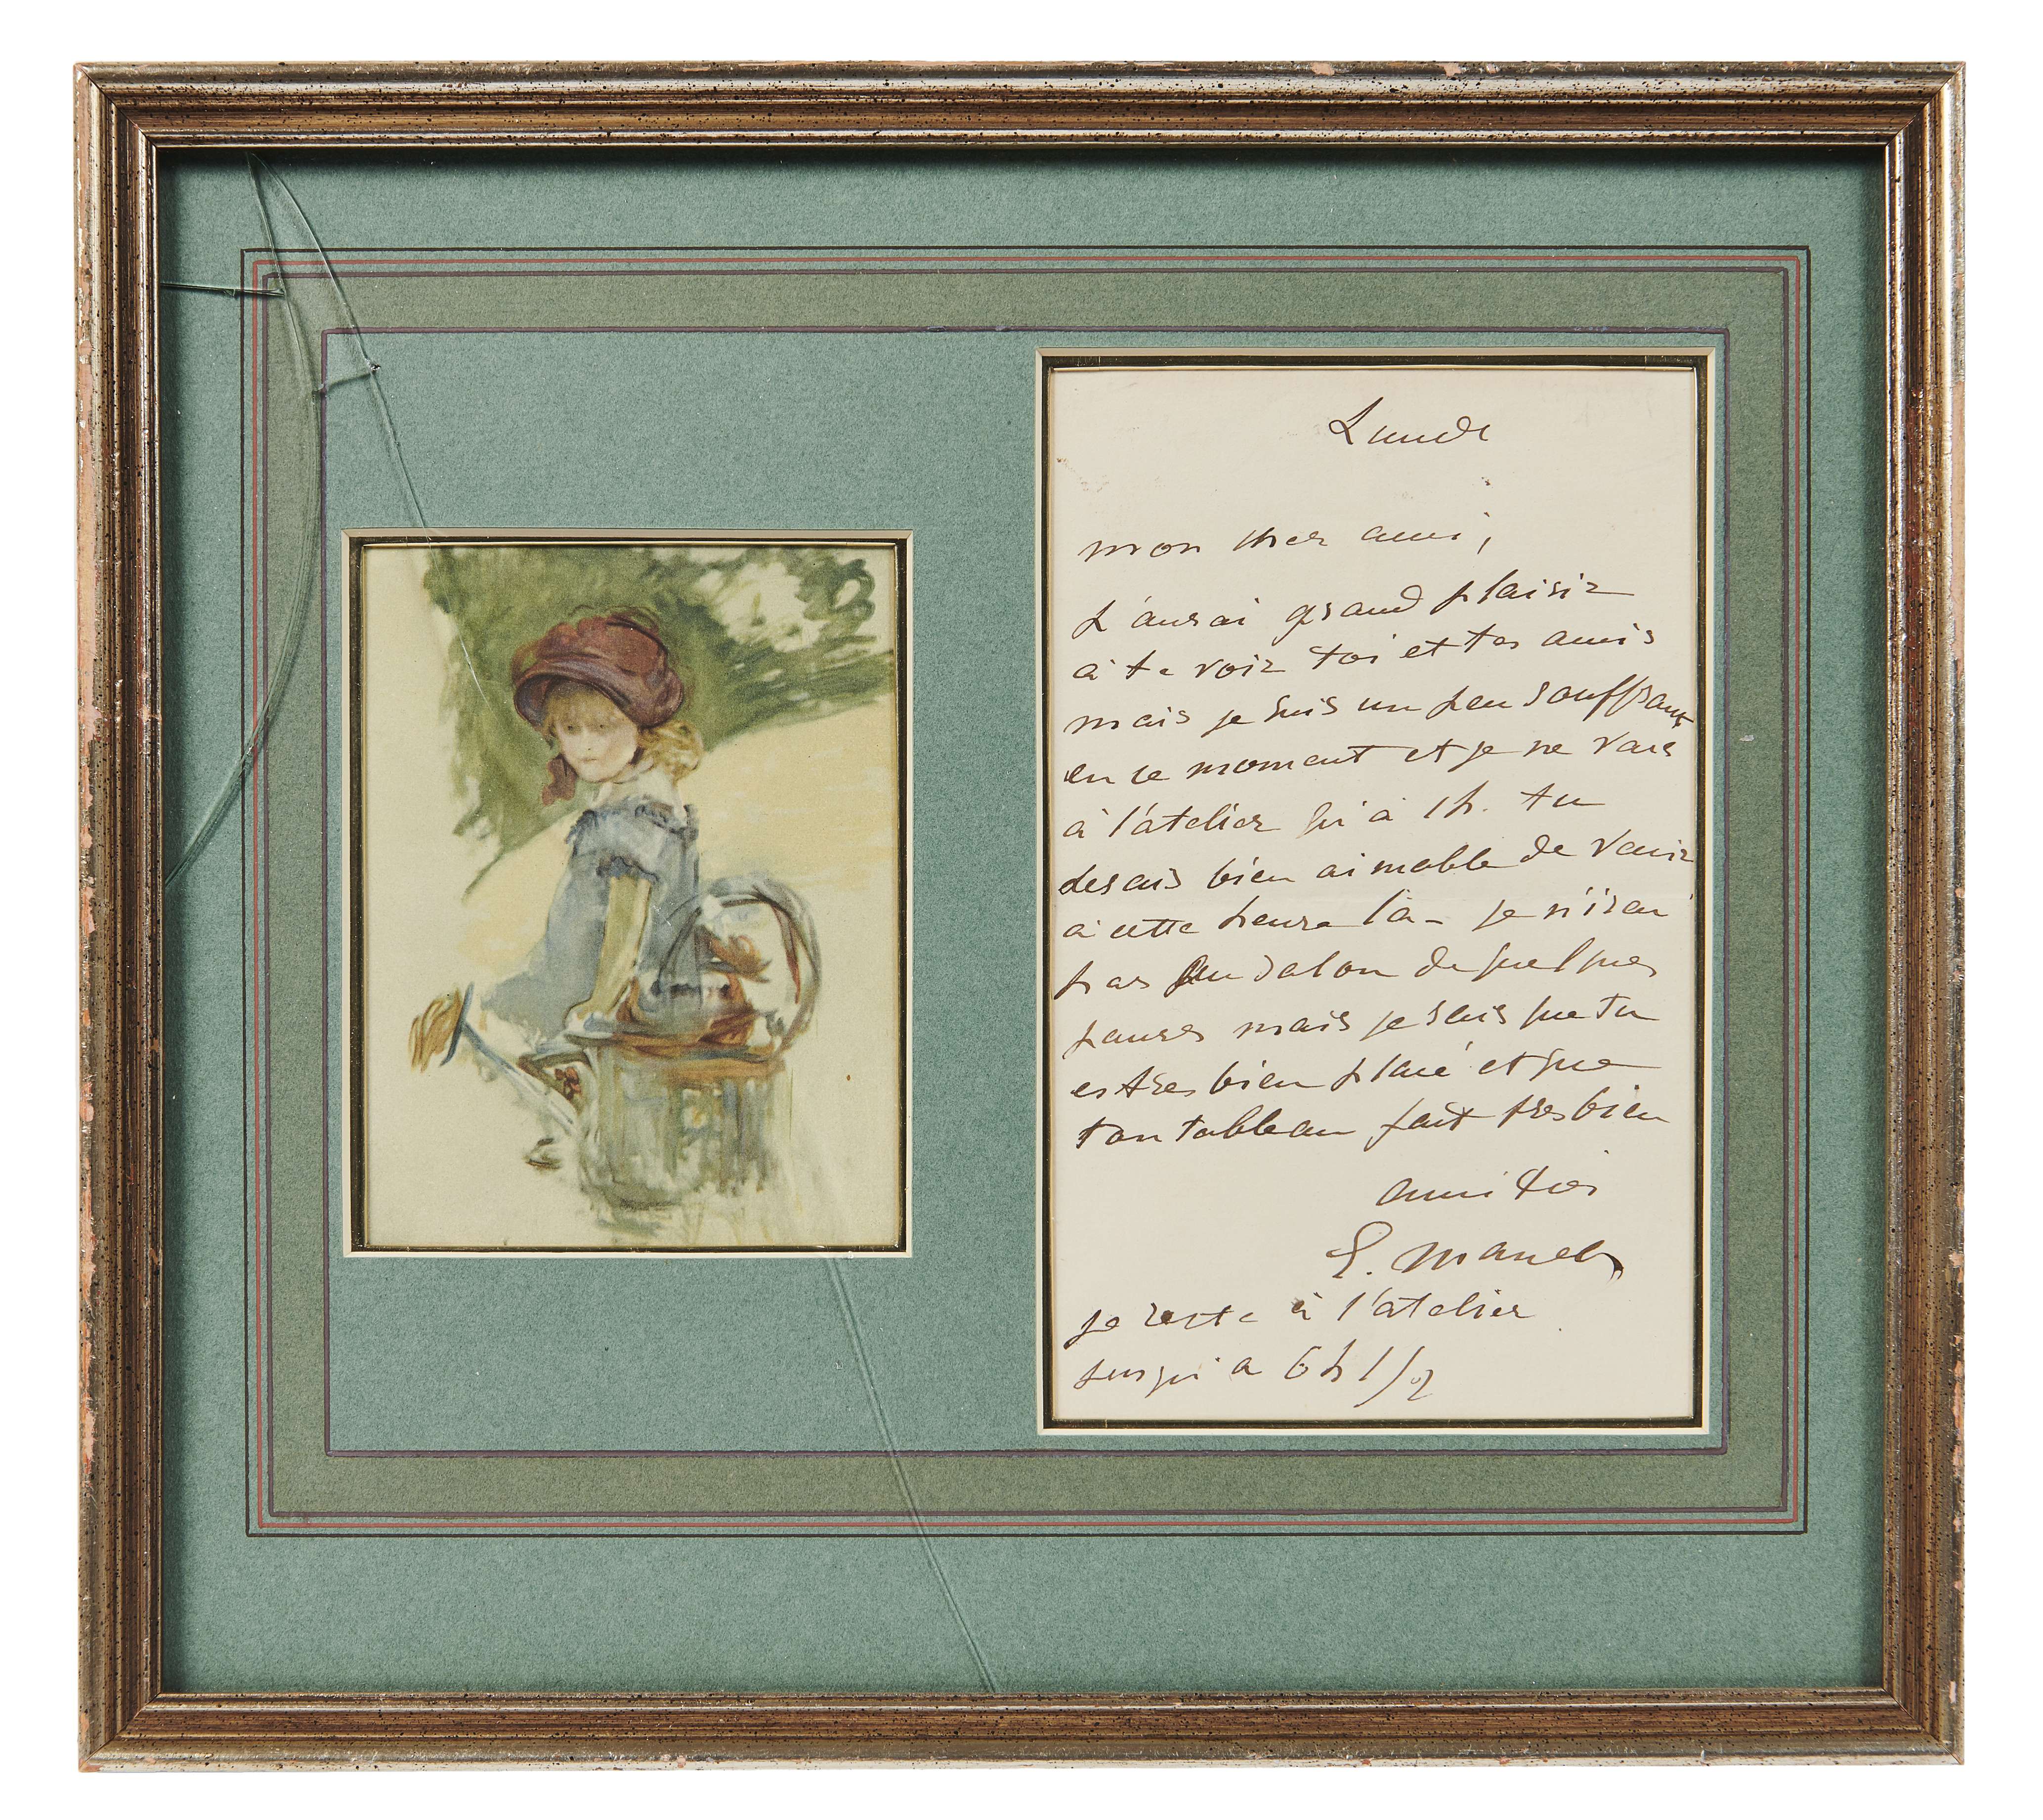 Lundi
mon cher ami,
J'aurai grand plaisir
à te voir toi et tes amis
mais je suis un peu souffrant
en ce moment et je ne vais
à l'atelier qu'à 1h. tu
serais bien aimable de venir
à cette heure là – je n'irai
pas au salon de quelques
jours mais je sais que tu
es très bien placé et que
ton tableau fait très bien
amitiés
E. Manet
je reste à l'atelier
jusqu'à 6h 1/2